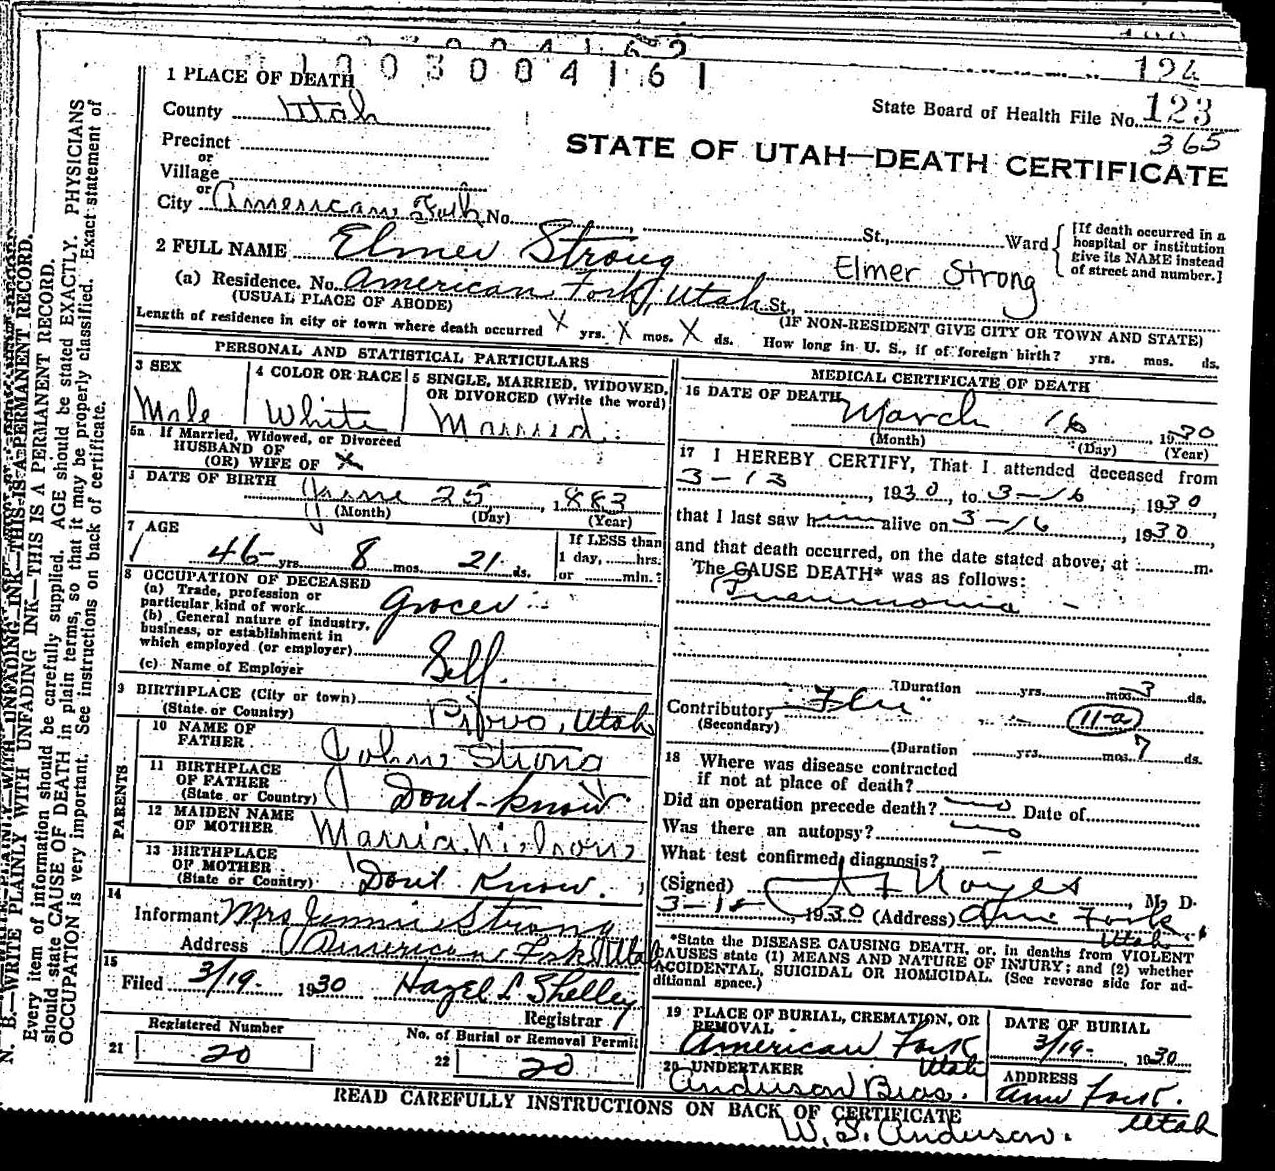 124
1 0 0 3 0 0 4 1 6 1
1 PLACE OF DEATH
State Board of Health File No. 123
365
County Utah
STATE OF UTAH—DEATH CERTIFICATE
Precinct
or
Village
or
City American Fork No. St., Ward
[If death occurred in a hospital or institution give its NAME instead of street and number.]
2 FULL NAME Elmer Strong Elmer Strong
(a) Residence. No. American Fork, Utah St.,
(USUAL PLACE OF ABODE) (IF NON-RESIDENT GIVE CITY OR TOWN AND STATE)
Length of residence in city or town where death occurred X yrs. X mos. X ds. How long in U. S., if of foreign birth? yrs. mos. ds.
PERSONAL AND STATISTICAL PARTICULARS
3 SEX
Male
4 COLOR OR RACE
White
5 SINGLE, MARRIED, WIDOWED, OR DIVORCED (Write the word)
Married
5a If Married, Widowed, or Divorced
HUSBAND OF
(OR) WIFE OF X
DATE OF BIRTH June 25, 1883
(Month) (Day) (Year)
7 AGE
46 yrs. 8 mos. 21 ds.
If LESS than
1 day, hrs.
or min.?
8 OCCUPATION OF DECEASED
(a) Trade, profession or particular kind of work Grocer
(b) General nature of industry, business, or establishment in which employed (or employer) Self.
(c) Name of Employer
9 BIRTHPLACE (City or town)
(State or Country) Provo, Utah
PARENTS
10 NAME OF FATHER John Strong
11 BIRTHPLACE OF FATHER
(State or Country) Dont-know
12 MAIDEN NAME OF MOTHER
13 BIRTHPLACE OF MOTHER
(State or Country) Dont Know.
14
Informant Mrs Jennie Strong
Address American Fork Utah
15
Filed 3/19- 1930 Hazel L Shelley
Registrar
Registered Number
21 20
No. of Burial or Removal Permit
22 20
MEDICAL CERTIFICATE OF DEATH
16 DATE OF DEATH March 16, 1930
(Month) (Day) (Year)
17 I HEREBY CERTIFY, That I attended deceased from
3-13, 1930, to 3-16, 1930
that I last saw him alive on 3-16, 1930,
and that death occurred, on the date stated above, at m.
The CAUSE DEATH* was as follows:
Pneumonia -
(Duration yrs. mos. 3 ds.
Contributory Flu 11-a
(Secondary)
(Duration yrs. mos. 7 ds.
18 Where was disease contracted
if not at place of death?
Did an operation precede death? no Date of
Was there an autopsy? no
What test confirmed diagnosis? -
(Signed) Noyes, M. D.
1930 (Address) Am Fork Utah
*State the DISEASE CAUSING DEATH, or, in deaths from VIOLENT CAUSES state (1) MEANS AND NATURE OF INJURY; and (2) whether ACCIDENTAL, SUICIDAL OR HOMICIDAL. (See reverse side for additional space.)
19 PLACE OF BURIAL, CREMATION, OR REMOVAL
American Fork Utah
DATE OF BURIAL
3/19- 1930
20 UNDERTAKER
Anderson Bros.
ADDRESS
Am Fork. Utah
READ CAREFULLY INSTRUCTIONS ON BACK OF CERTIFICATE
W. S. Anderson.
N. B.—WRITE PLAINLY WITH UNFADING INK—THIS IS A PERMANENT RECORD.
Every item of information should be carefully supplied. AGE should be stated EXACTLY. PHYSICIANS
should state CAUSE OF DEATH in plain terms, so that it may be properly classified. Exact statement of
OCCUPATION is very important. See instructions on back of certificate.